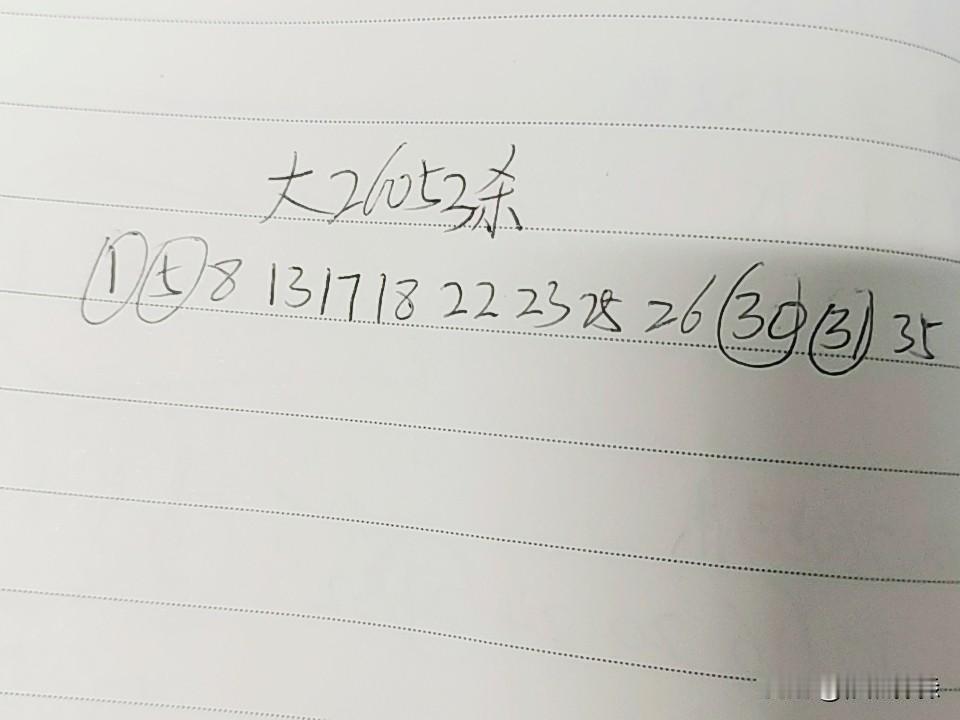 大26053杀
1 5 8 13 17 18 22 23 25 26 30 31 35